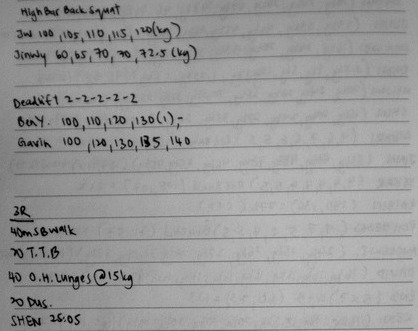 High Bar Back Squat
JW 100, 105, 110, 115, 120(kg)
Jinwy 60, 65, 70, 70, 72.5 (kg)
Deadlift 2-2-2-2-2
Ben Y. 100, 110, 120, 130(1), -
Gavin 100, 120, 130, 135, 140
3R
40m SB walk
20 T.T.B
40 O.H. Lunges @ 15kg
20 DUs.
SHEN 25:05